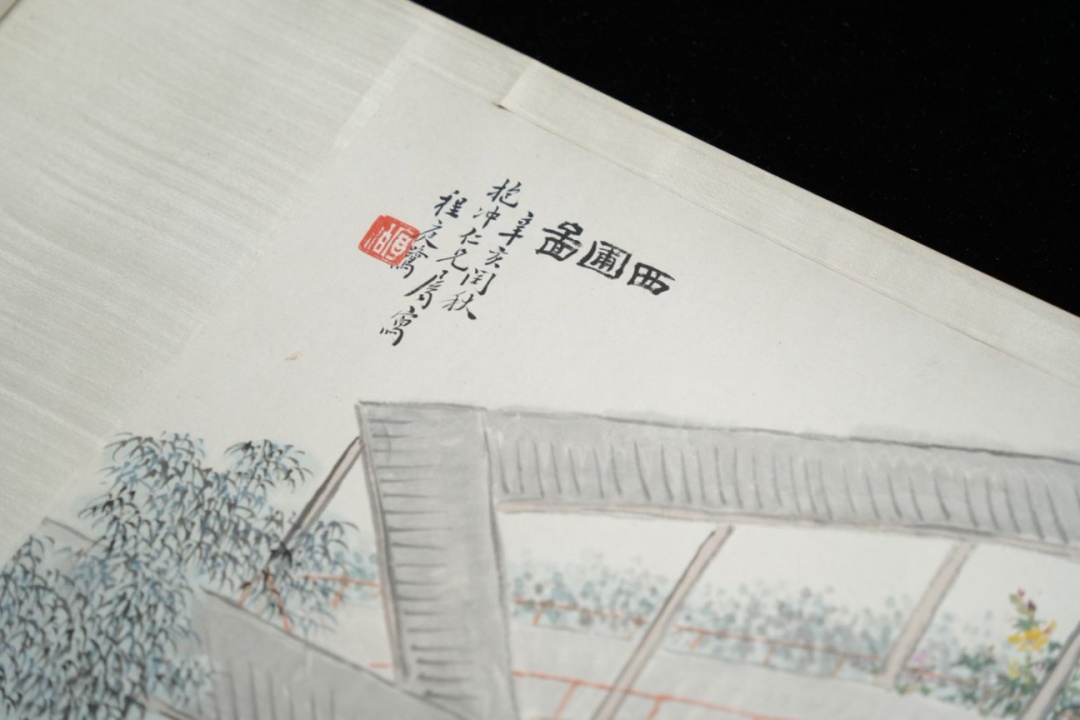 西圃圖
辛亥閏秋
抱冲仁兄属寫
程庭鷺